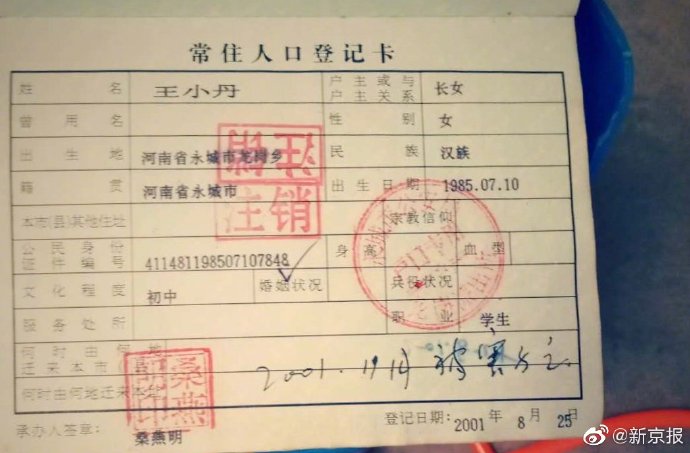 常住人口登记卡
姓名 王小丹 户主或与户主关系 长女
曾用名 性别 女
出生地 河南省永城市龙岗乡 民族 汉族
籍贯 河南省永城市 出生日期 1985.07.10
本市(县)其他住址 宗教信仰
公民身份证件编号 411481198507107848 身高 血型
文化程度 初中 婚姻状况 兵役状况
服务处所 职业 学生
何时由何地迁来本市(县)
何时由何地迁来本址
2001.11.14
注销
桑燕明印
承办人签章: 桑燕明 登记日期: 2001年8月25日
@新京报